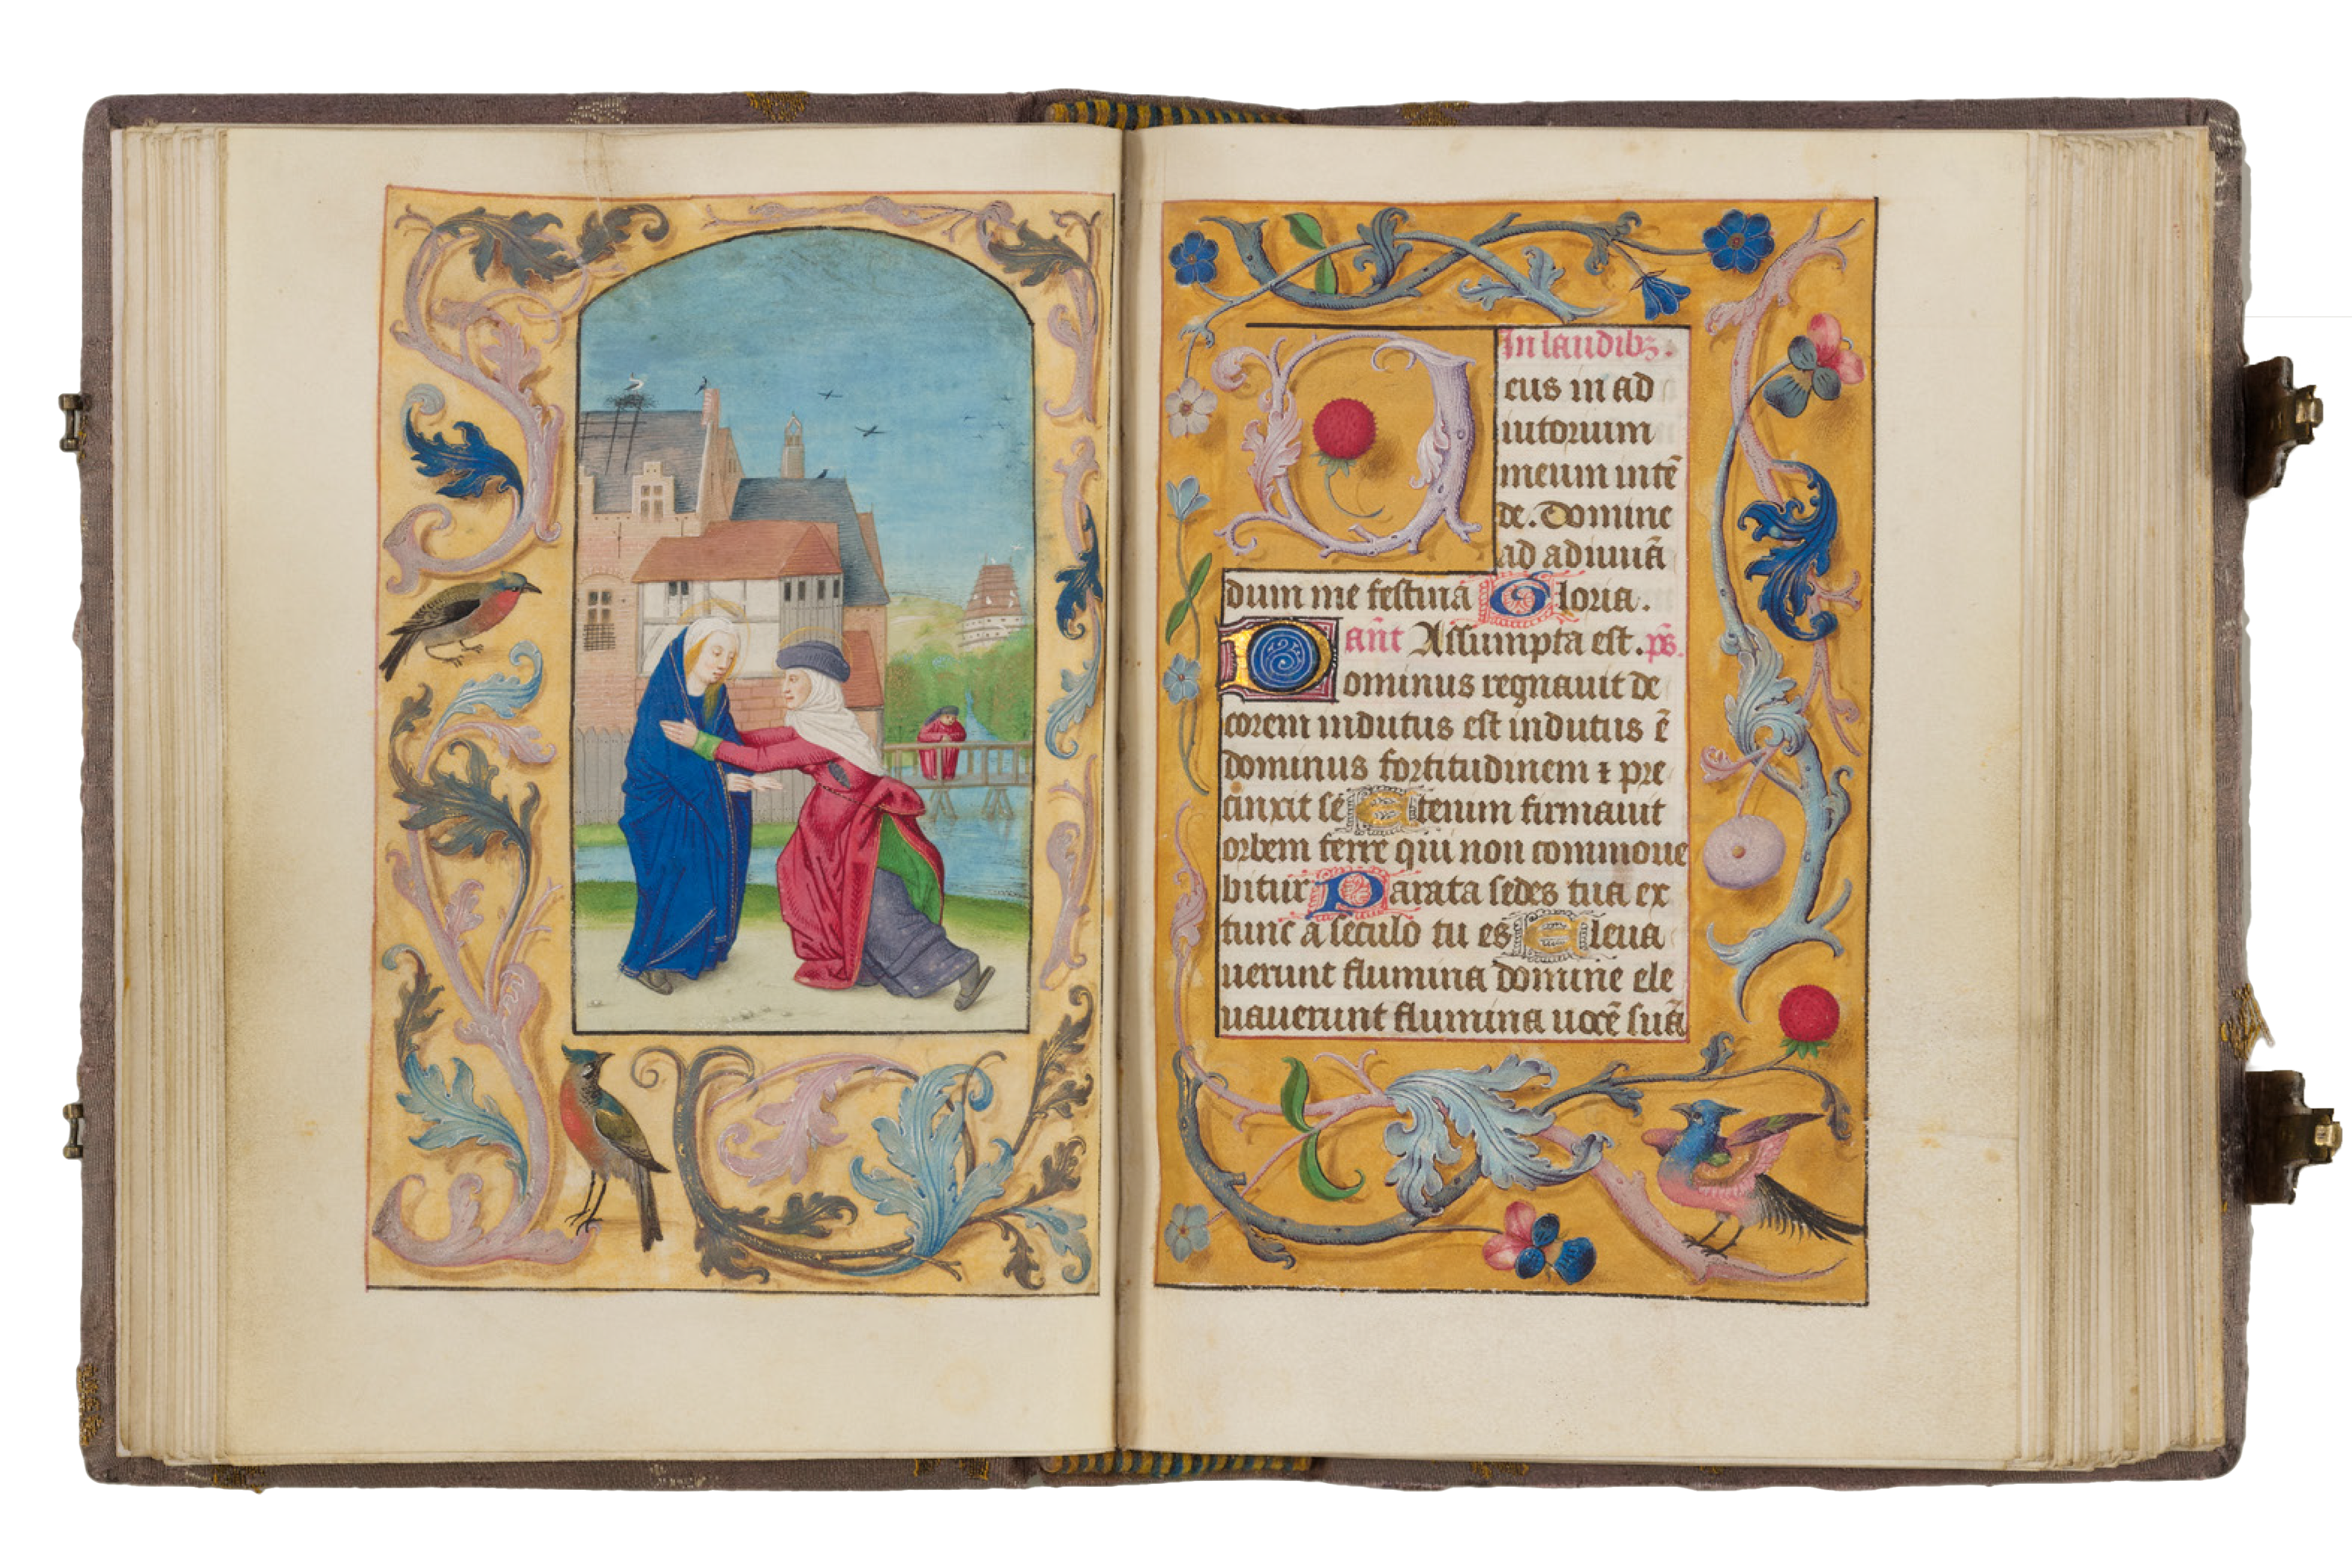 In laudibꝫ.
Deus in ad
iutorium
meum intē
de. Domine
ad adiuuā
dum me festina Gloria.
añt Assumpta est. ps.
Dominus regnauit de
corem indutus est indutus ē
dominus fortitudinem ⁊ pre
cinxit se Etenim firmauit
orbem terre qui non commoue
bitur Parata sedes tua ex
tunc a seculo tu es Eleua
uerunt flumina domine ele
uauerunt flumina uocē suā